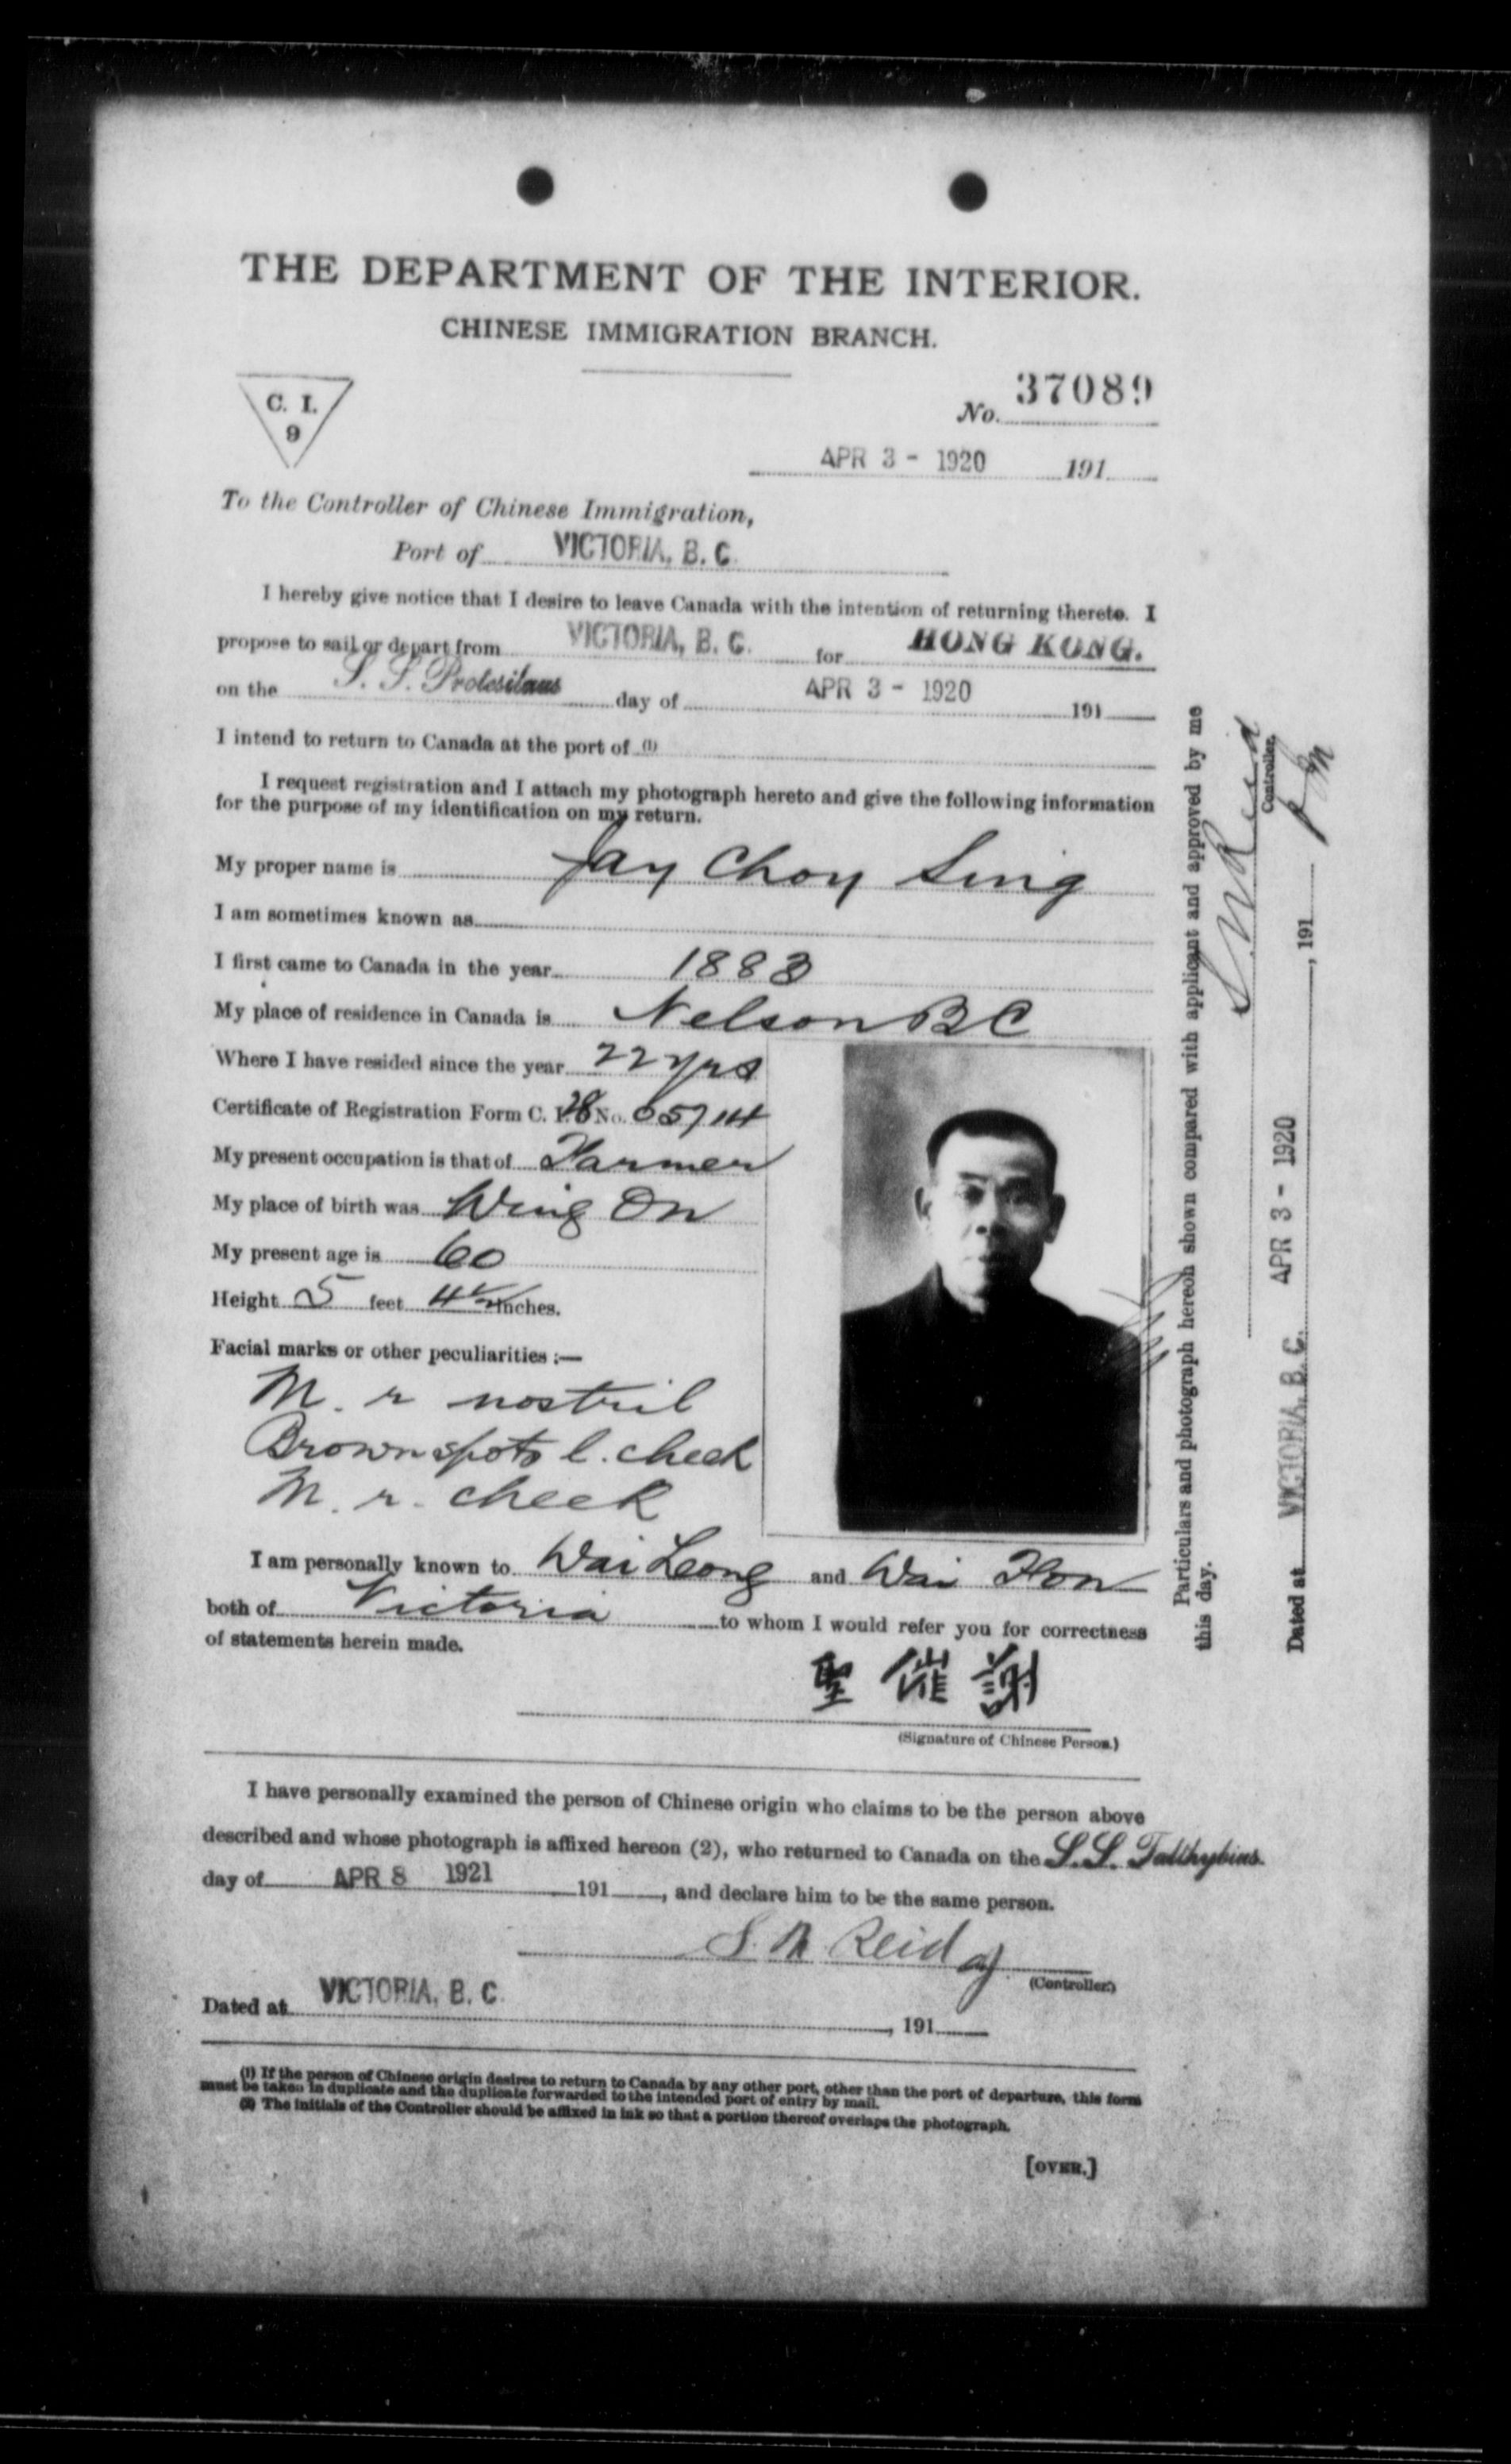 THE DEPARTMENT OF THE INTERIOR.
CHINESE IMMIGRATION BRANCH.
C. I.
9
No. 37089
APR 3 - 1920 191
To the Controller of Chinese Immigration,
Port of VICTORIA, B. C.
I hereby give notice that I desire to leave Canada with the intention of returning thereto. I
propose to sail or depart from VICTORIA, B. C. for HONG KONG.
on the S. S. Protesilaus day of APR 3 - 1920 191
I intend to return to Canada at the port of (1)
I request registration and I attach my photograph hereto and give the following information
for the purpose of my identification on my return.
My proper name is Jay Choy Sing
I am sometimes known as
I first came to Canada in the year 1883
My place of residence in Canada is Nelson BC
Where I have resided since the year 22 yrs
Certificate of Registration Form C. I. 28 No. 05714
My present occupation is that of Farmer
My place of birth was Wing On
My present age is 60
Height 5 feet 4½ inches.
Facial marks or other peculiarities :—
M. r nostril
Brown spots l. cheek
M. r. cheek
I am personally known to Wai Leong and Wai Hon
both of Victoria to whom I would refer you for correctness
of statements herein made.
聖催謝
(Signature of Chinese Person.)
I have personally examined the person of Chinese origin who claims to be the person above
described and whose photograph is affixed hereon (2), who returned to Canada on the S.S. Talthybius
day of APR 8 1921 191 , and declare him to be the same person.
S. N. Reid
(Controller.)
Dated at VICTORIA, B. C. , 191
(1) If the person of Chinese origin desires to return to Canada by any other port, other than the port of departure, this form
must be taken in duplicate and the duplicate forwarded to the intended port of entry by mail.
(2) The initials of the Controller should be affixed in ink so that a portion thereof overlaps the photograph.
[OVER.]
Particulars and photograph hereon shown compared with applicant and approved by me
this day.
S. N. Reid
Controller.
Dated at VICTORIA, B. C. APR 3 - 1920 , 191